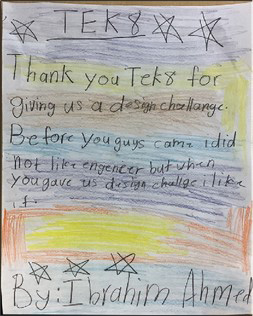 TEK8
Thank you Tek8 for
giving us a design challange.
Before you guys came i did
not like engeneer but when
you gave us design challge i like
it.
By: Ibrahim Ahmed